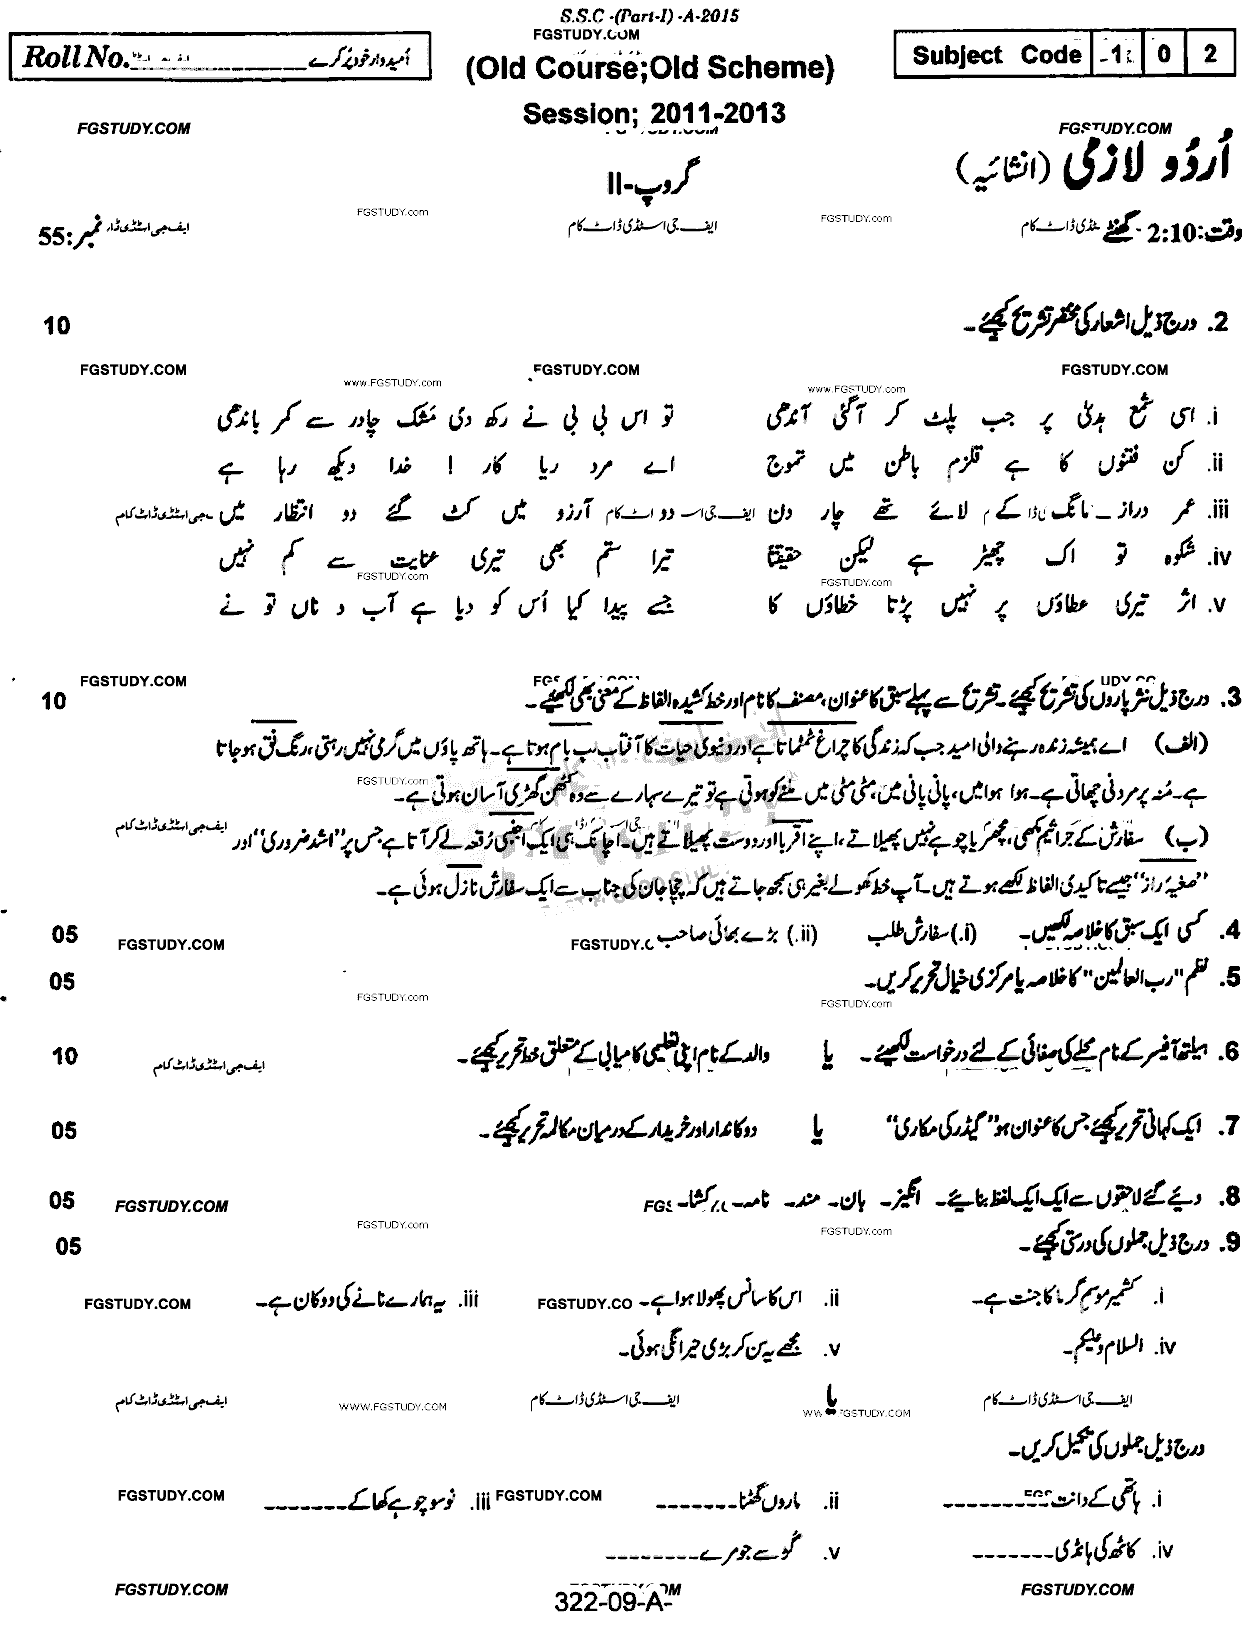 S.S.C -(Part-I) -A-2015
FGSTUDY.COM
Roll No. امیدوار خود پُر کرے
(Old Course;Old Scheme)
Subject Code 1 0 2
Session; 2011-2013
FGSTUDY.COM FGSTUDY.COM
اُردُو لازمی (انشائیہ)
گروپ-II
FGSTUDY.com FGSTUDY.com
وقت:2:10 گھنٹے ایف جی اسٹڈی ڈاٹ کام نمبر:55
2. درج ذیل اشعار کی مختصر تشریح کیجئے۔ 10
FGSTUDY.COM FGSTUDY.COM FGSTUDY.COM
www.FGSTUDY.com www.FGSTUDY.com
i. اسی شمع ہدیٰ پر جب پلٹ کر آ گئی آندھی تو اس بی بی نے رکھ دی مشک چادر سے کمر باندھی
ii. کن فتنوں کا ہے قلزم باطن میں تموج اے مرد ریا کار ! خدا دیکھ رہا ہے
iii. عمر دراز مانگ کے لائے تھے چار دن دو آرزو میں کٹ گئے دو انتظار میں
iv. شکوہ تو اک چھیڑ ہے لیکن حقیقتاً تیرا ستم بھی تیری عنایت سے کم نہیں
FGSTUDY.com FGSTUDY.com
v. اثر تیری عطاؤں پر نہیں پڑتا خطاؤں کا جسے پیدا کیا اُس کو دیا ہے آب و ناں تو نے
FGSTUDY.COM
3. درج ذیل نثر پاروں کی تشریح کیجئے۔ تشریح سے پہلے سبق کا عنوان، مصنف کا نام اور خط کشیدہ الفاظ کے معنی بھی لکھیئے۔ 10
(الف) اے ہمیشہ زندہ رہنے والی امید جب کہ زندگی کا چراغ ٹمٹماتا ہے اور دنیوی حیات کا آفتاب لب بام ہوتا ہے۔ ہاتھ پاؤں میں گرمی نہیں رہتی، رنگ فق ہو جاتا
ہے۔ مُنہ پر مردنی چھاتی ہے۔ ہوا ہوا میں، پانی پانی میں، مٹی مٹی میں ملنے کو ہوتی ہے تو تیرے سہارے سے وہ کٹھن گھڑی آسان ہوتی ہے۔
FGSTUDY.com
(ب) سفارش کے جراثیم مکھی، مچھر یا چوہے نہیں پھیلاتے، اپنے اقربا اور دوست پھیلاتے ہیں۔ اچانک ہی ایک اجنبی رُقعہ لے کر آتا ہے جس پر "اشد ضروری" اور ایف جی اسٹڈی ڈاٹ کام
"صیغہ راز" جیسے تاکیدی الفاظ لکھے ہوتے ہیں۔ آپ خط کھولے بغیر ہی سمجھ جاتے ہیں کہ چچا جان کی جناب سے ایک سفارش نازل ہوئی ہے۔
4. کسی ایک سبق کا خلاصہ لکھیں۔ (i.) سفارش طلب (ii.) بڑے بھائی صاحب 05
FGSTUDY.COM
5. نظم "رب العالمین" کا خلاصہ یا مرکزی خیال تحریر کریں۔ 05
FGSTUDY.com FGSTUDY.com
6. ہیلتھ آفیسر کے نام محلے کی صفائی کے لئے درخواست لکھیئے۔ یا والد کے نام اپنی تعلیمی کامیابی کے متعلق خط تحریر کیجئے۔ 10
ایف جی اسٹڈی ڈاٹ کام
7. ایک کہانی تحریر کیجئے جس کا عنوان ہو "گیڈر کی مکاری" یا دوکاندار اور خریدار کے درمیان مکالمہ تحریر کیجئے۔ 05
8. دیئے گئے لاحقوں سے ایک ایک لفظ بنایئے۔ انگیز۔ بان۔ مند۔ نامہ۔ کشا۔ 05
FGSTUDY.COM
FGSTUDY.com FGSTUDY.com
9. درج ذیل جملوں کی درستی کیجئے۔ 05
i. کشمیر موسم گرما کا جنت ہے۔ ii. اس کا سانس پھولا ہوا ہے۔ iii. یہ ہمارے نانے کی دوکان ہے۔
FGSTUDY.COM
iv. السلام وعلیکم۔ v. مجھے یہ سن کر بڑی حیرانگی ہوئی۔
یا
ایف جی اسٹڈی ڈاٹ کام ایف جی اسٹڈی ڈاٹ کام ایف جی اسٹڈی ڈاٹ کام
WWW.FGSTUDY.COM
درج ذیل جملوں کی تکمیل کریں۔
i. ہاتھی کے دانت--------- ii. ماروں گھٹنا------- iii. نو سو چوہے کھا کے-------
FGSTUDY.COM FGSTUDY.COM
iv. کاٹھ کی ہانڈی------- v. گُڑ سے جو مرے--------
FGSTUDY.COM FGSTUDY.COM
322-09-A-